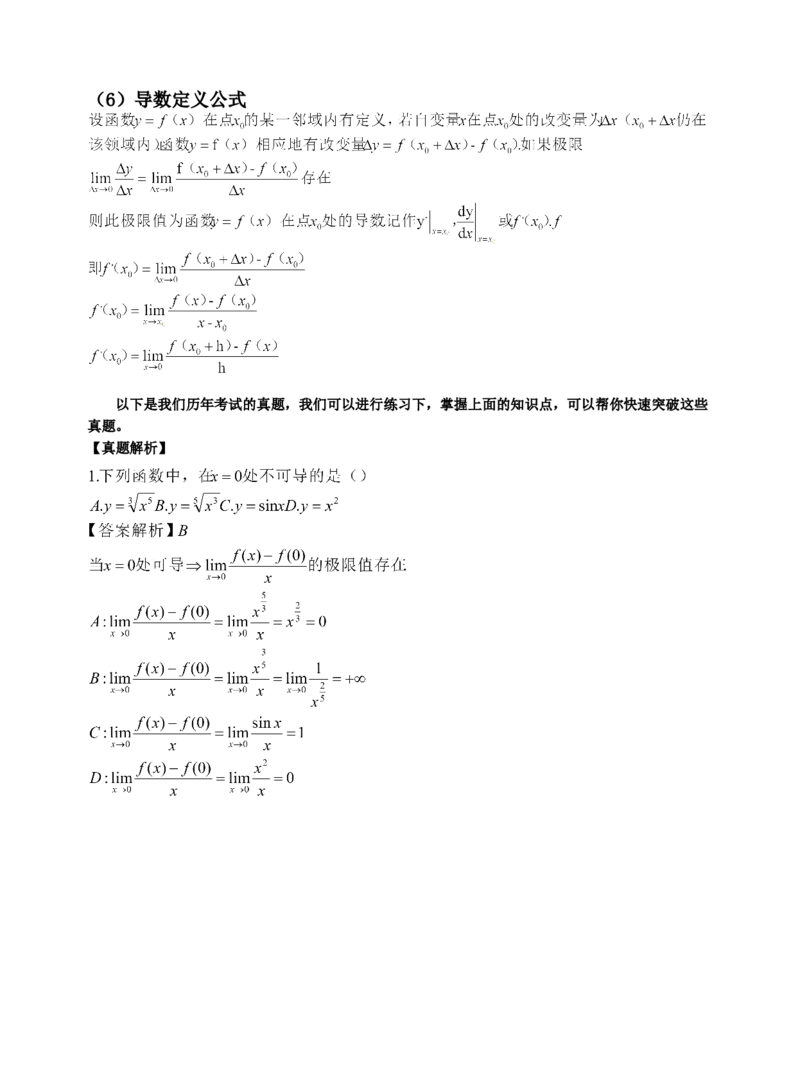 （6）导数定义公式
设函数y = f（x）在点x₀的某一邻域内有定义，若自变量x在点x₀处的改变量为Δx（x₀ + Δx仍在
该领域内）函数y = f（x）相应地有改变量Δy = f（x₀ + Δx）- f（x₀）.如果极限
lim_{Δx→0} Δy/Δx = lim_{Δx→0} (f（x₀ + Δx）- f（x₀）)/Δx 存在
则此极限值为函数y = f（x）在点x₀处的导数记作y'|_{x=x₀}, dy/dx|_{x=x₀} 或f'（x₀）. f
即f'（x₀）= lim_{Δx→0} (f（x₀ + Δx）- f（x₀）)/Δx
f'（x₀）= lim_{x→x₀} (f（x）- f（x₀）)/(x - x₀)
f'（x₀）= lim_{x→0} (f（x₀ + h）- f（x）)/h
以下是我们历年考试的真题，我们可以进行练习下，掌握上面的知识点，可以帮你快速突破这些
真题。
【真题解析】
1.下列函数中，在x = 0处不可导的是（）
A.y = ∛x⁵ B.y = ⁵√x³ C.y = sinx D.y = x²
【答案解析】B
当x = 0处可导 ⇒ lim_{x→0} (f(x) − f(0))/x 的极限值存在
A: lim_{x→0} (f(x) − f(0))/x = lim_{x→0} x^{5/3}/x = x^{2/3} = 0
B: lim_{x→0} (f(x) − f(0))/x = lim_{x→0} x^{3/5}/x = lim_{x→0} 1/x^{2/5} = +∞
C: lim_{x→0} (f(x) − f(0))/x = lim_{x→0} sin x/x = 1
D: lim_{x→0} (f(x) − f(0))/x = lim_{x→0} x²/x = 0